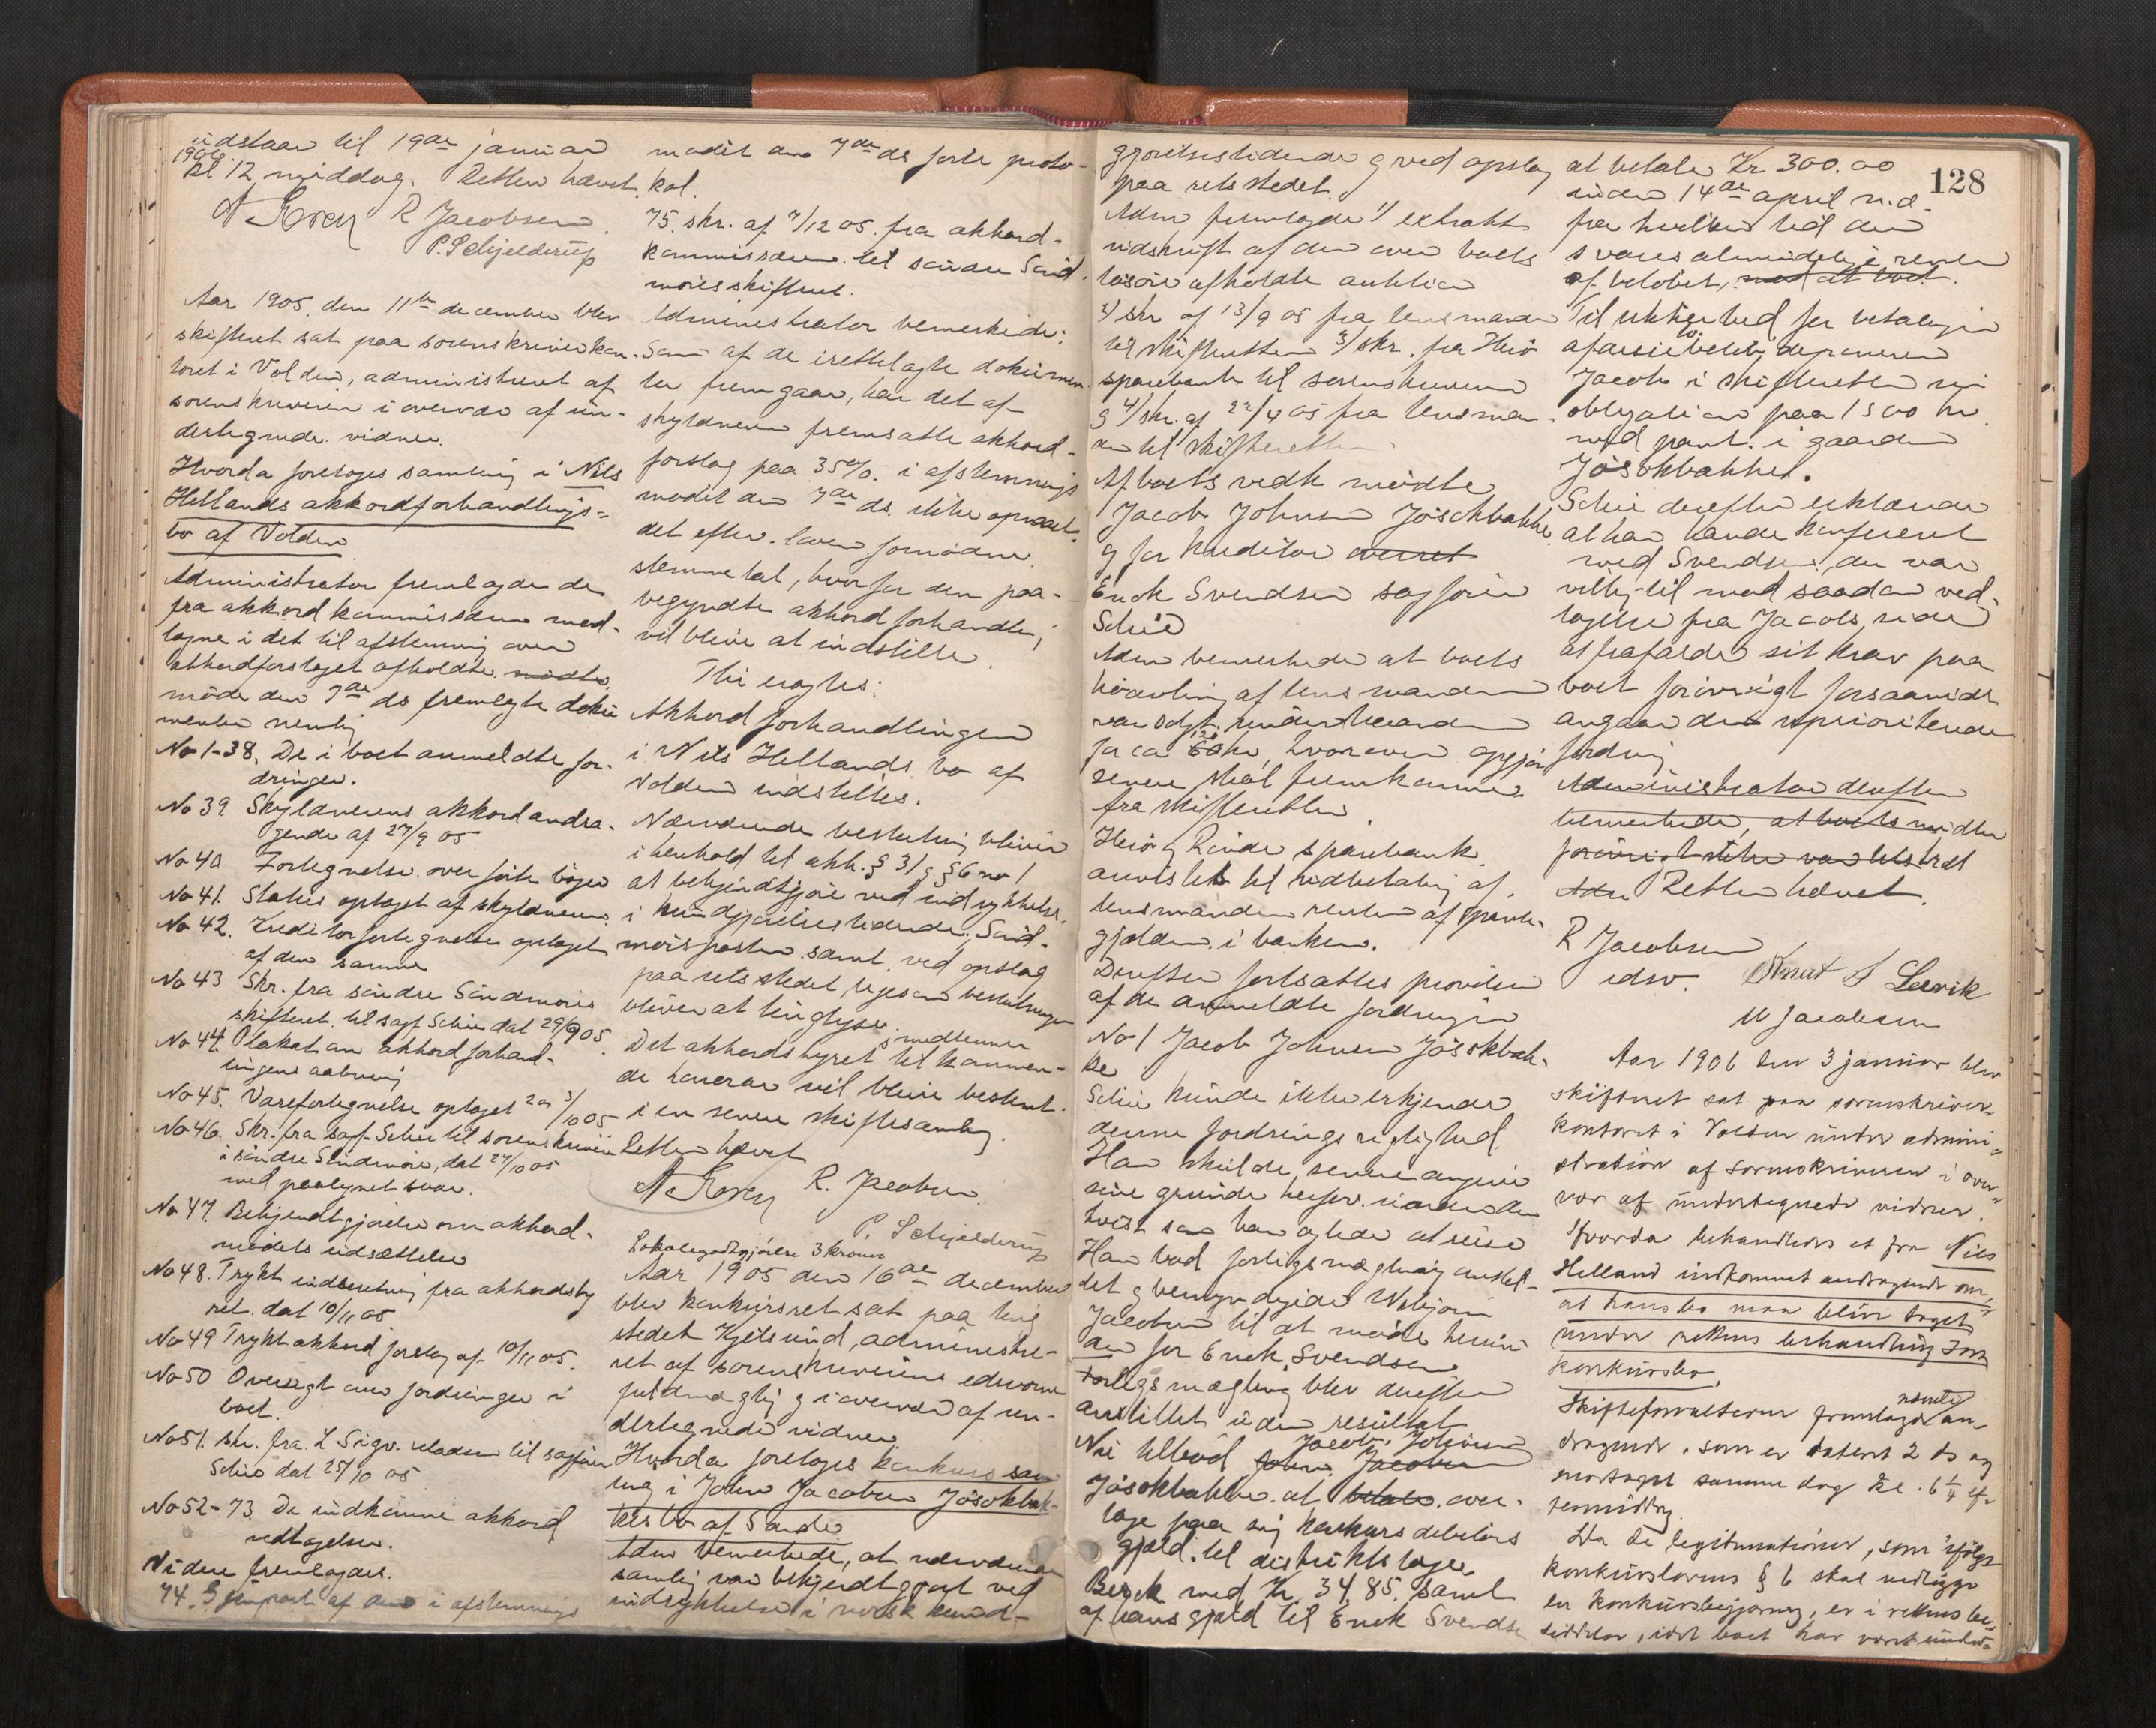 udstaar til 19de januar
1906
kl 12 middag. Retten hævet.
R Jacobsen
P. Schjelderup
Aar 1905 den 11te december blev
skifteret sat paa sorenskriverkon-
toret i Volden, administreret af
sorenskriveren i overvær af un-
dertegnede vidner.
Hvorda foretoges samling i Nils
Hellands akkordforhandlings-
bo af Volden
Administrator fremlagde de
fra akkordkommissæren mod-
tagne i det til afstemning over
akkordforslaget afholdte mødte
møde den 7de ds fremlagte doku
menter nemlig
No 1-38. De i boet anmeldte for-
dringer.
No 39 Skyldnerens akkordandra-
gende af 27/9 05
No 40 Fortegnelse over førte bøger
No 41. Status optaget af skyldneren
No 42. Kreditorfortegnelse optaget
af den samme
No 43 Skr. fra søndre Søndmøres
skifteret til sagf. Schie dat 29/9 05
No 44. Plakat om akkordforhand-
lingens aabning
No 45. Varefortegnelse optaget 2 og 3/10 05
No 46. Skr. fra sagf. Schie til sorenskriveren
i søndre Søndmøre, dat 27/10 05
med paategnet svar.
No 47. Bekjendtgjørelse om akkord-
mødets udsættelse
No 48. Trykt indberetning fra akkordsty
ret dat 10/11 05
No 49 Trykt akkordforslag af 10/11 05.
No 50 Oversigt over fordringer i
boet.
No 51. Skr. fra L Sigv. til sagfører
Schie dat 25/10 05
No 52-73. De indkomne akkord
vedtagelser.
Videre fremlagdes.
74. Gjenpart af den i afstemnings
mødet den 7de ds førte proto-
kol.
75. skr. af 7/12 05. fra akkord-
kommissæren til søndre Sønd-
møres skifteret.
Administrator bemerkede:
Som af de irettelagte dokumen-
ter fremgaar, har det af
skyldneren fremsatte akkord-
forslag paa 35% i afstemnings
mødet den 7de ds. ikke opnaaet
det efter loven fornødne
stemmetal, hvorfor den paa-
begyndte akkordforhandling
vil blive at indstille.
Thi eragtes:
Akkordforhandlingen
i Nils Hellands bo af
Volden indstilles.
Nærværende beslutning bliver
i henhold til akk. § 31 g § 6 no 1
at bekjendtgjøre ved indrykkelse
i kundgjørelsestidende, Sønd-
mørsposten samt ved opslag
paa retsstedet, ligesom beslutningen
bliver at tinglyse.
Det akkordstyrets medlemmer tilkommen-
de honorar vil blive bestemt
i en senere skiftesamling.
Retten hævet
R. Jacobsen.
P. Schjelderup
Lokalegodtgjørelse 3 kroner
Aar 1905 den 16de december
blev konkursret sat paa ting
stedet Kjelsund, administre-
ret af sorenskriverens edsvorne
fuldmægtig g i overvær af un-
dertegnede vidner.
Hvorda foretoges konkurssam-
ling i John Jacobsen Jøsokbak-
kes bo af Sande
Adm bemerkede, at nærværende
samling var bekjendtgjort ved
indrykkelse i norsk kund-
gjørelsestidende g ved opslag
paa retsstedet.
Adm fremlagde 1/ extrakt
udskrift af den over boets
løsøre afholdte auktion
2/ skr af 13/9 05 fra lensmanden
til skifteretten 3/ skr. fra Herø
sparebank til sorenskriveren
g 4/ skr. af 22/4 05 fra lensman-
den til skifteretten
Af boets vedk mødte
Jacob Johnsen Jøsokbakke
g for kreditor
Enok Svendsen sagfører
Schie
Adm bemerkede at boets
af lensmanden
var solgt underhaanden
for ca 120 kr, hvorover opgjør
senere skal fremkomme
fra skifteretten.
Herø g Rovde sparebank
anvistes til udbetaling af
lensmanden renten af pante-
gjelden i banken.
Derefter fortsattes prøvelsen
af de anmeldte fordringer
No 1 Jacob Johnsen Jøsokbak-
ke
Schie kunde ikke erkjende
denne fordrings rigtighed.
Han skulde senere angive
sine grunde herfor
Han bad forligsmægling anstil-
det g bemyndigede
Jacobsen til at møde herun
der for Enok Svendsen
Forligsmægling blev derefter
anstillet uden resultat
Nu tilbød Jacob Johnsen
Jøsokbakke at betale over-
tage paa sig konkursdebitors
gjeld til distriktslæge
Berck med Kr. 34,85. samt
af hans gjeld til Enok Svendsen
128
at betale Kr 300.00
inden 14de april n.a.
fra hvilken tid der
svares almindelige renter
af beløbet, med at boet.
Til sikkerhed for betalingen
af disse beløb deponerer
Jacob i skifteretten sin
obligation paa 1500 kr
med pant i gaarden
Jøsokbakke.
Schie derefter erklærede
at han havde konfereret
med Svendsen, der var
villig til mod saadan ved-
tagelse fra Jacobs side
at frafalde sit krav paa
boet forøvrigt forsaavidt
angaar den uprioriterede
fordring
Administrator derefter
bemerkede, at boets midler
forøvrigt ikke var
Adm Retten hævet.
R Jacobsen
edsv. Knut J Leervik
M Jacobsen
Aar 1906 den 3 januar blev
skifteret sat paa sorenskriver-
kontoret i Volden under admini-
stration af sorenskriveren i over-
vær af undertegnede vidner.
Hvorda behandledes et fra Nils
Helland indkommet andragende om,
at hans bo maa blive taget
under rettens behandling som
konkursbo.
Skifteforvalteren fremlagde nævnte an-
dragende, som er dateret 2 ds og
modtaget samme dag kl. 6 1/4 ef-
termiddag.
Da de legitimationer, som ifølge
konkurslovens § 6 skal vedlægges
en konkursbegjæring, er i rettens be-
siddelse, idet boet har været under